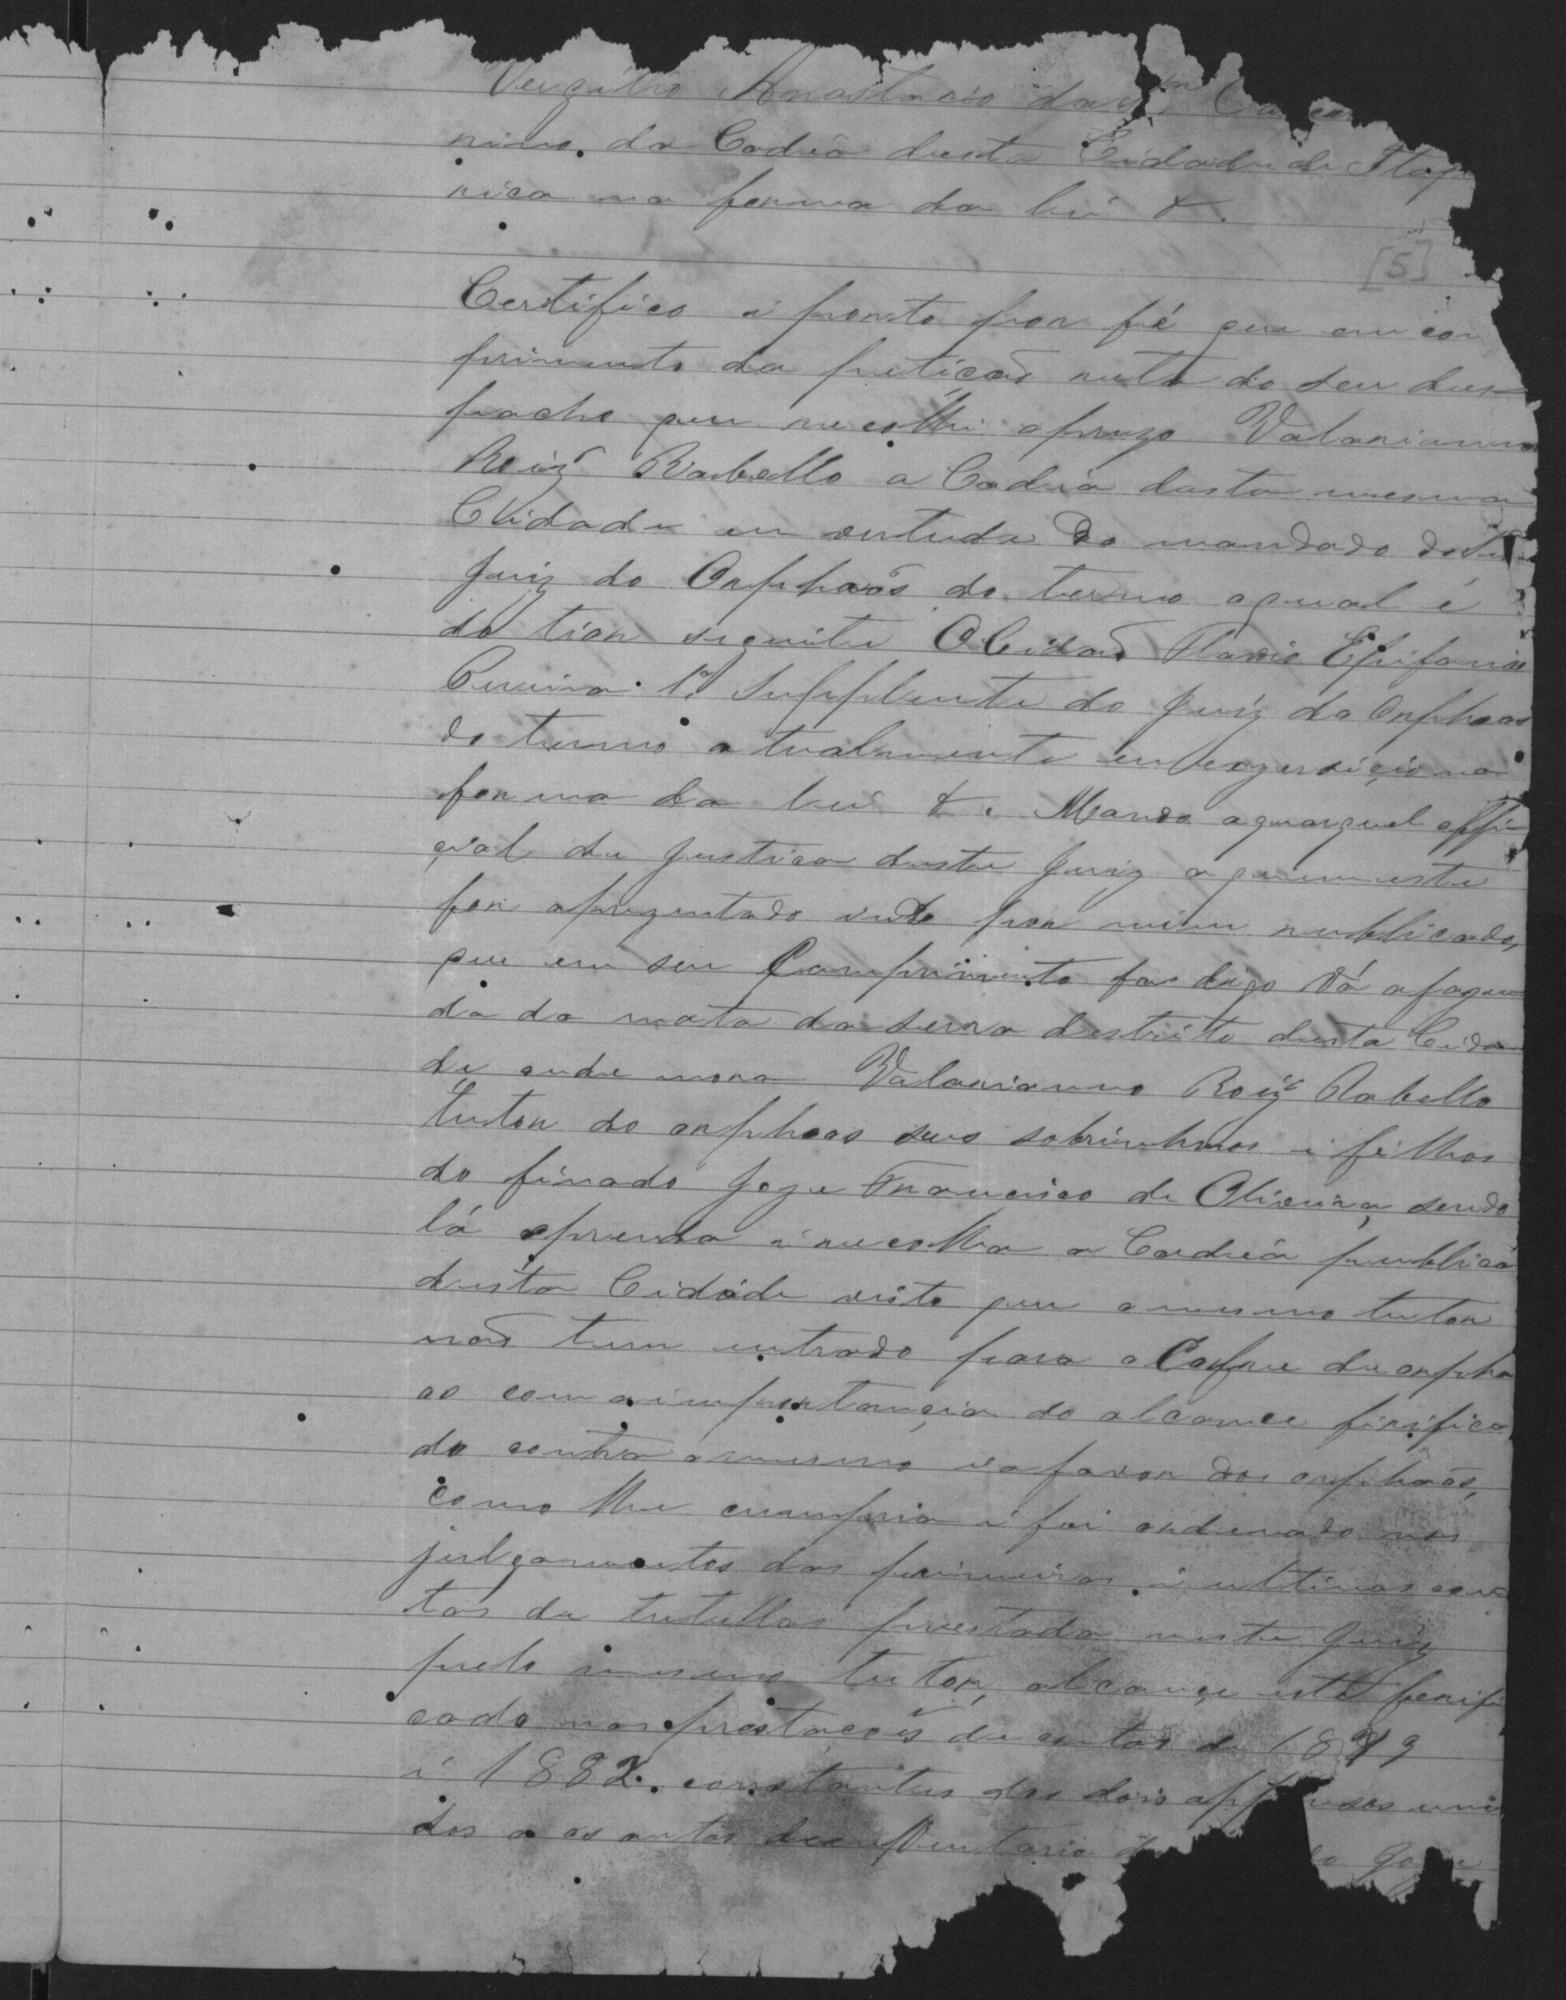 Vergilio Anastacio da
reiro da Cadeia desta Cidade de Itap
rica na forma da lei &.
[5]
Certifico i porto por fé que em com
primento da peticaõ retro do seu des
pacho que recolhi aprezo Valarianno
Roiz Rabello a Cadeia desta mesma
Cidade em vertude do mandado do
Juiz do Orphaõs do termo aqual é
do tior seguinte O Cidaõ Flavio Epifanio
1º Supplente do Juiz do Orphaos
do termo atualmente em exzersicio na
forma da lei &. Mando aquarquel offi
cial de Justica deste Juiz aquem este
for aprezentado indo por mim rubblicado,
que em seu Comprimento fas digo vá afazen
da da mata da serra destrito desta Cida
de onde mora Valarianno Roiz Rabello
tutor do orphaos seus sobrinhos i filhos
do finado Joze Francisco de Oliveira, sendo
lá oprenda i recolha a Cadeia publica
desta Cidade visto que o mesmo tutor
naõ tem entrado para o Cofre de orpha
os com a importancia do alcance
do contra o mesmo i afavor dos orphaõs,
como lhe cumpria i foi ordenado nos
julgamentos das primeiras i ultimas con
tas da tutellas prestada neste Juiz
pelo mesmo tutor, alcance este
cado nas prestacoẽs de contas de 1879
i 1882. constantes dos dois app nsos uni
dos a os autos de enventario d do Joze